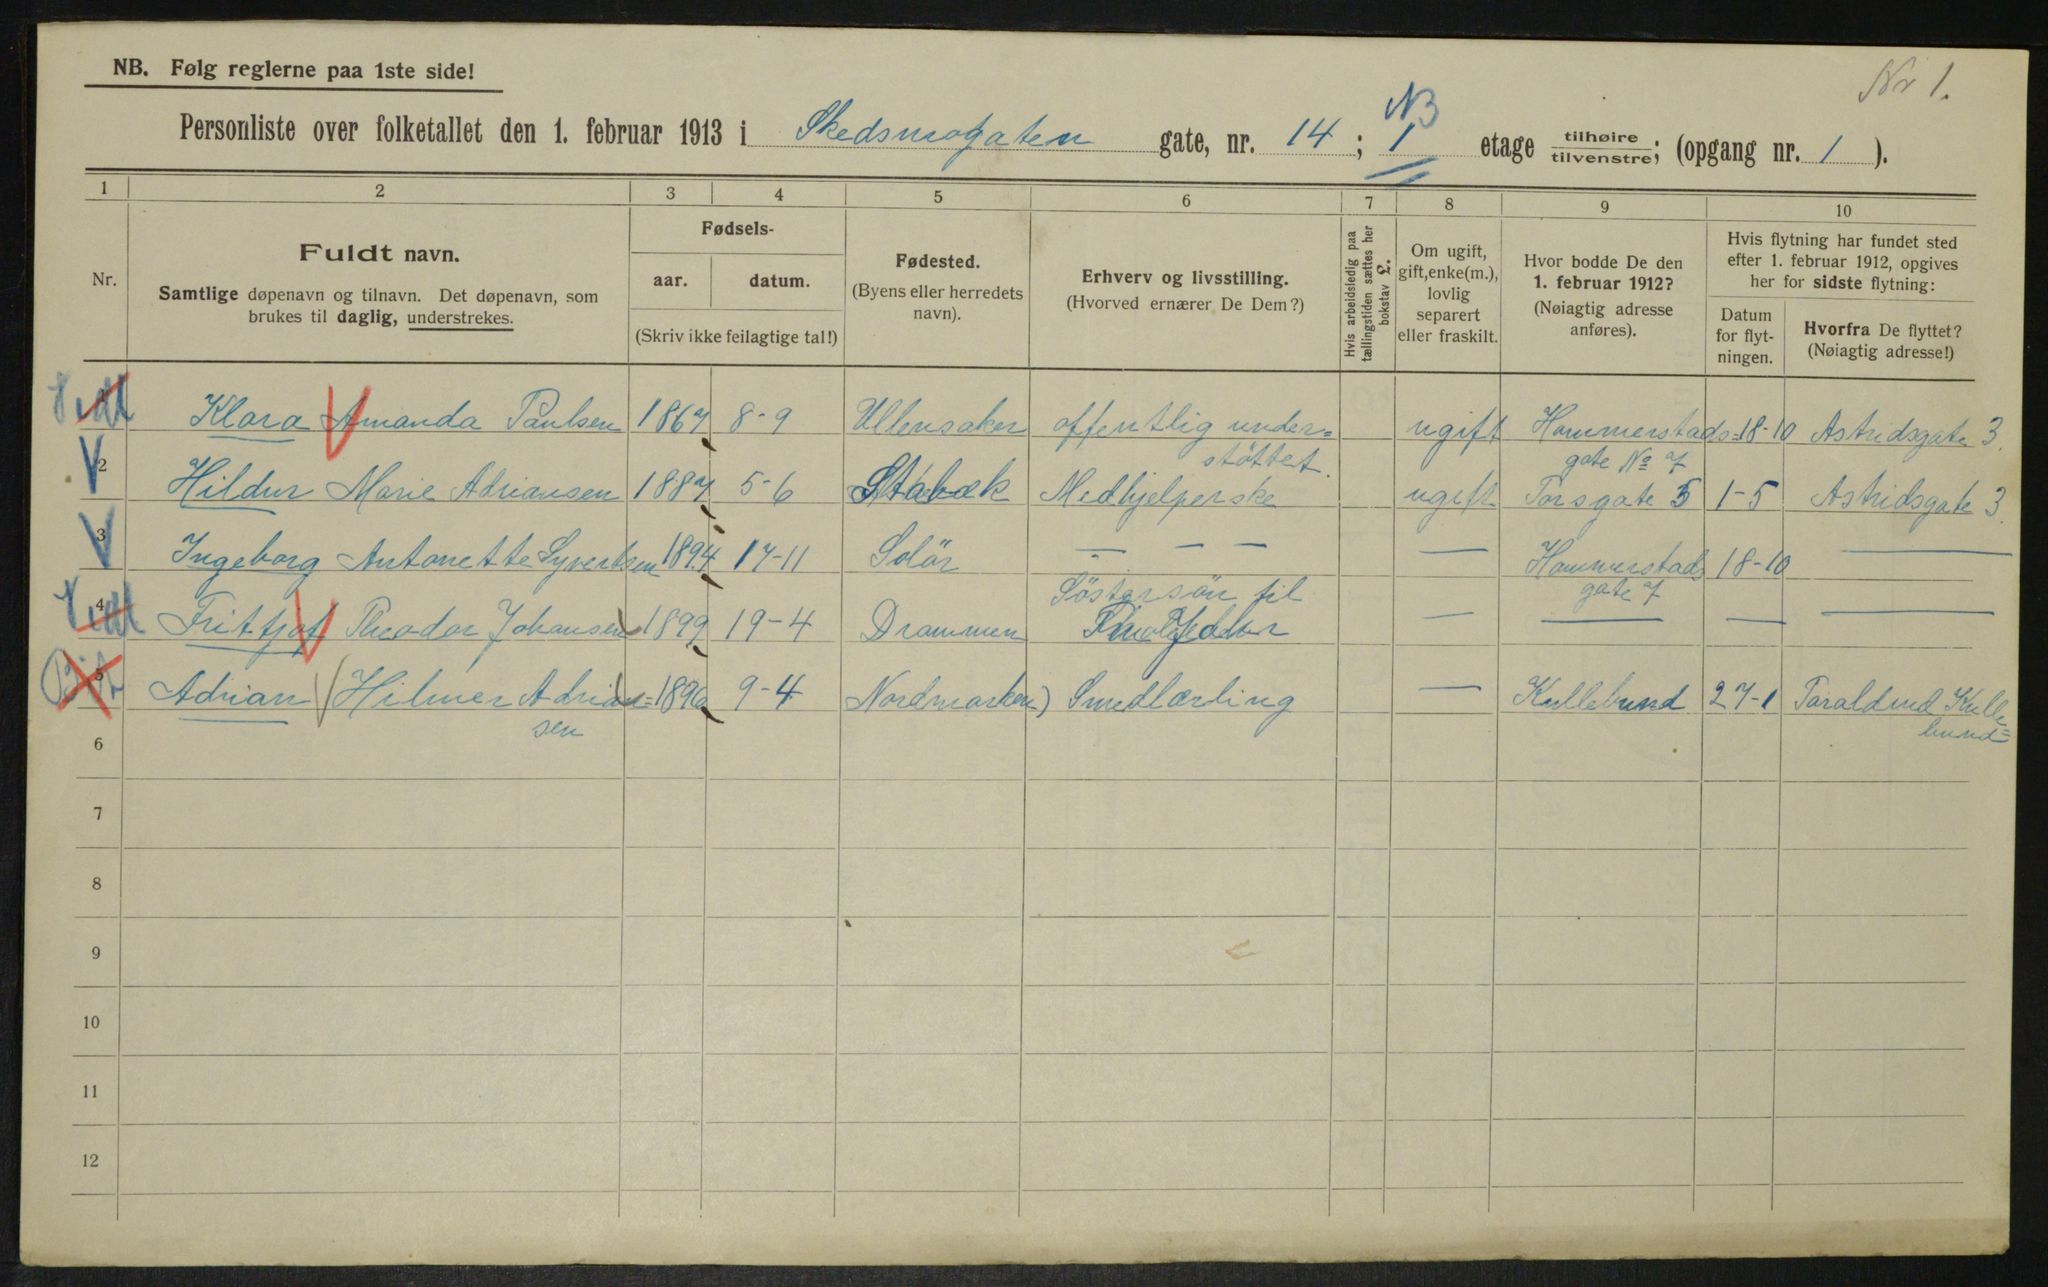 NB. Følg reglerne paa 1ste side!
Nr 1.
NB
Personliste over folketallet den 1. februar 1913 i Skedsmogaten gate, nr. 14; 1 etage tilhøire tilvenstre; (opgang nr. 1).
1 2 3 4 5 6 7 8 9 10
Nr.
Fuldt navn.
Samtlige døpenavn og tilnavn. Det døpenavn, som
brukes til daglig, understrekes.
Fødsels-
aar. datum.
(Skriv ikke feilagtige tal!)
Fødested.
(Byens eller herredets
navn).
Erhverv og livsstilling.
(Hvorved ernærer De Dem?)
Hvis arbeidsledig paa
tællingstiden sættes her
bokstav L.
Om ugift,
gift, enke(m.),
lovlig
separert
eller fraskilt.
Hvor bodde De den
1. februar 1912?
(Nøiagtig adresse
anføres).
Hvis flytning har fundet sted
efter 1. februar 1912, opgives
her for sidste flytning:
Datum
for flyt-
ningen.
Hvorfra De flyttet?
(Nøiagtig adresse!)
1 Klara Amanda Paulsen 1867 8-9 Ullensaker offentlig under= ugift Hammerstads= 18-10 Astridsgate 3
støttet gate No 7
2 Hildur Marie Adriansen 1887 5-6 Stabæk Medhjelperske ugift Torsgate 5 1-5 Astridsgate 3
3 Ingeborg Antonette Syvertsen 1894 17-11 Solör — — — — Hammerstads 18-10 —
gate 7
Söstersön til
4 Fritjof Theodor Johansen 1899 19-4 Drammen — — —
5 Adrian Hilmer Adrian= 1896 9-4 Nordmarken) Smedlærling — Kullebund 27-1 Taraldrud Kulle
sen bund=
6
7
8
9
10
11
12